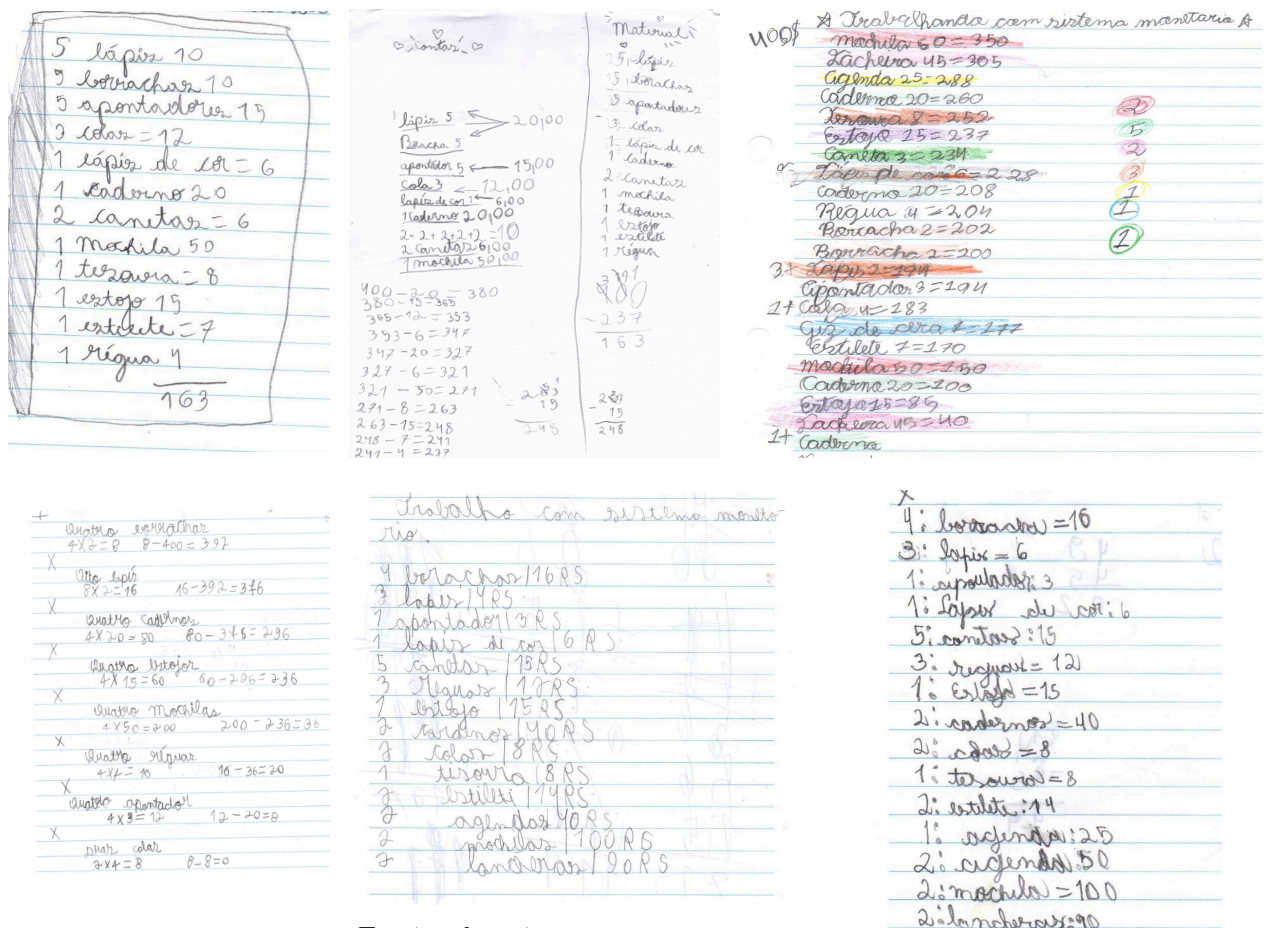 5 lápis 10
5 borrachas 10
5 apontadores 15
3 colas = 12
1 lápis de cor = 6
1 caderno 20
2 canetas = 6
1 mochila 50
1 tesoura = 8
1 estojo 15
1 estilete = 7
1 régua 4
163
Contas
lápis 5 20,00
Boracha 5
apontador 5 15,00
cola 3 12,00
lapiz de cor 1 6,00
1 caderno 20,00
2+2+2+2+2 =10
2 canetas 6,00
1 mochila 50,00
400-20 = 380
380-15=365
365-12=353
353-6=347
347-20=327
327-6=321
321-50=271
271-8=263
263-15=248
248-7=241
241-4=237
19
248
Material
5 lápis
5 borachas
5 apontadores
3 colar
1 lápis de cor
1 caderno
2 canetas
1 mochila
1 tesoura
1 estojo
1 estilete
1 régua
-237
163
- 15
248
400$ Trabalhando com sistema monetario
mochila 50=350
Lacheira 45=305
agenda 25=288
Caderno 20=260
Tesoura 8=252
Estojo 15=237
Caneta 3=234
Lápis de cor 6=228
caderno 20=208
Regua 4=204
Borracha 2=202
Borracha 2=200
3+ Lapis 2=194
Apontador 3=194
1+ Cola 4=183
Giz de cera 7=177
Estilete 7=170
mochila 50=150
Caderno 20=100
Estojo 15=85
Lacheira 45=40
1+ Caderno
2
5
2
3
1
1
1
+
Quatro borrachas
4x2=8 8-400=392
X
Oito lapis
8x2=16 16-392=376
X
Quatro cadernos
4x20=80 80-376=296
X
Quatro Estojos
4x15=60 60-296=236
X
Quatro Mochilas
4x50=200 200-236=36
X
Quatro réguas
4x4=16 16-36=20
X
Quatro apontador
4x3=12 12-20=8
X
duas colas
2x4=8 8-8=0
Trabalho com sistema moneto
rio.
4 borachas/16RS
3 lapis/4RS
1 apontador/3RS
1 lapis de cor/6RS
5 canetas/15RS
3 reguas/12RS
1 estojo/15RS
2 cardinos/40RS
2 colas/8RS
1 tisoura/8RS
2 Estileti/14RS
2 agendas 40RS
2 mochilas/100RS
2 lancheras/90RS
X
4: borracha=16
3: lapis=6
1: apontador: 3
1: Lápis de cor: 6
5: canetas: 15
3: reguas= 12
1: Estojo =15
2: cadernos=40
2: colas=8
1: tesoura=8
2: estilete:14
1: agenda:25
2: agenda:50
2: mochila=100
2: lancheras:90